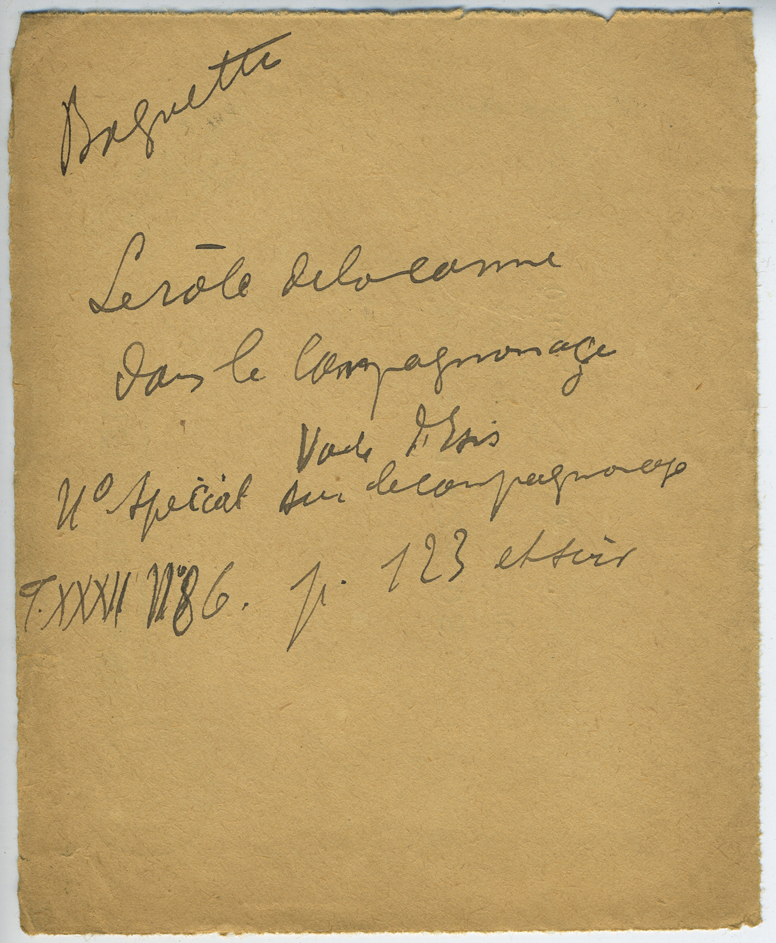 Baguette
Le rôle de la canne
dans le Compagnonnage
Voile d'Isis
N° Spécial sur le compagnonage
T. XXXII N° 86. p. 123 et suiv